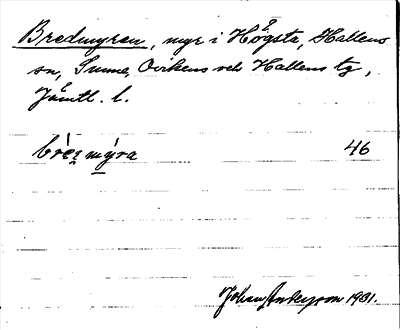 Bredmyren, myr i Högsta, Hallens
sn, Sunne, Ovikens och Hallens tg,
Jämtl. l.
46
Johan Anderson 1931.